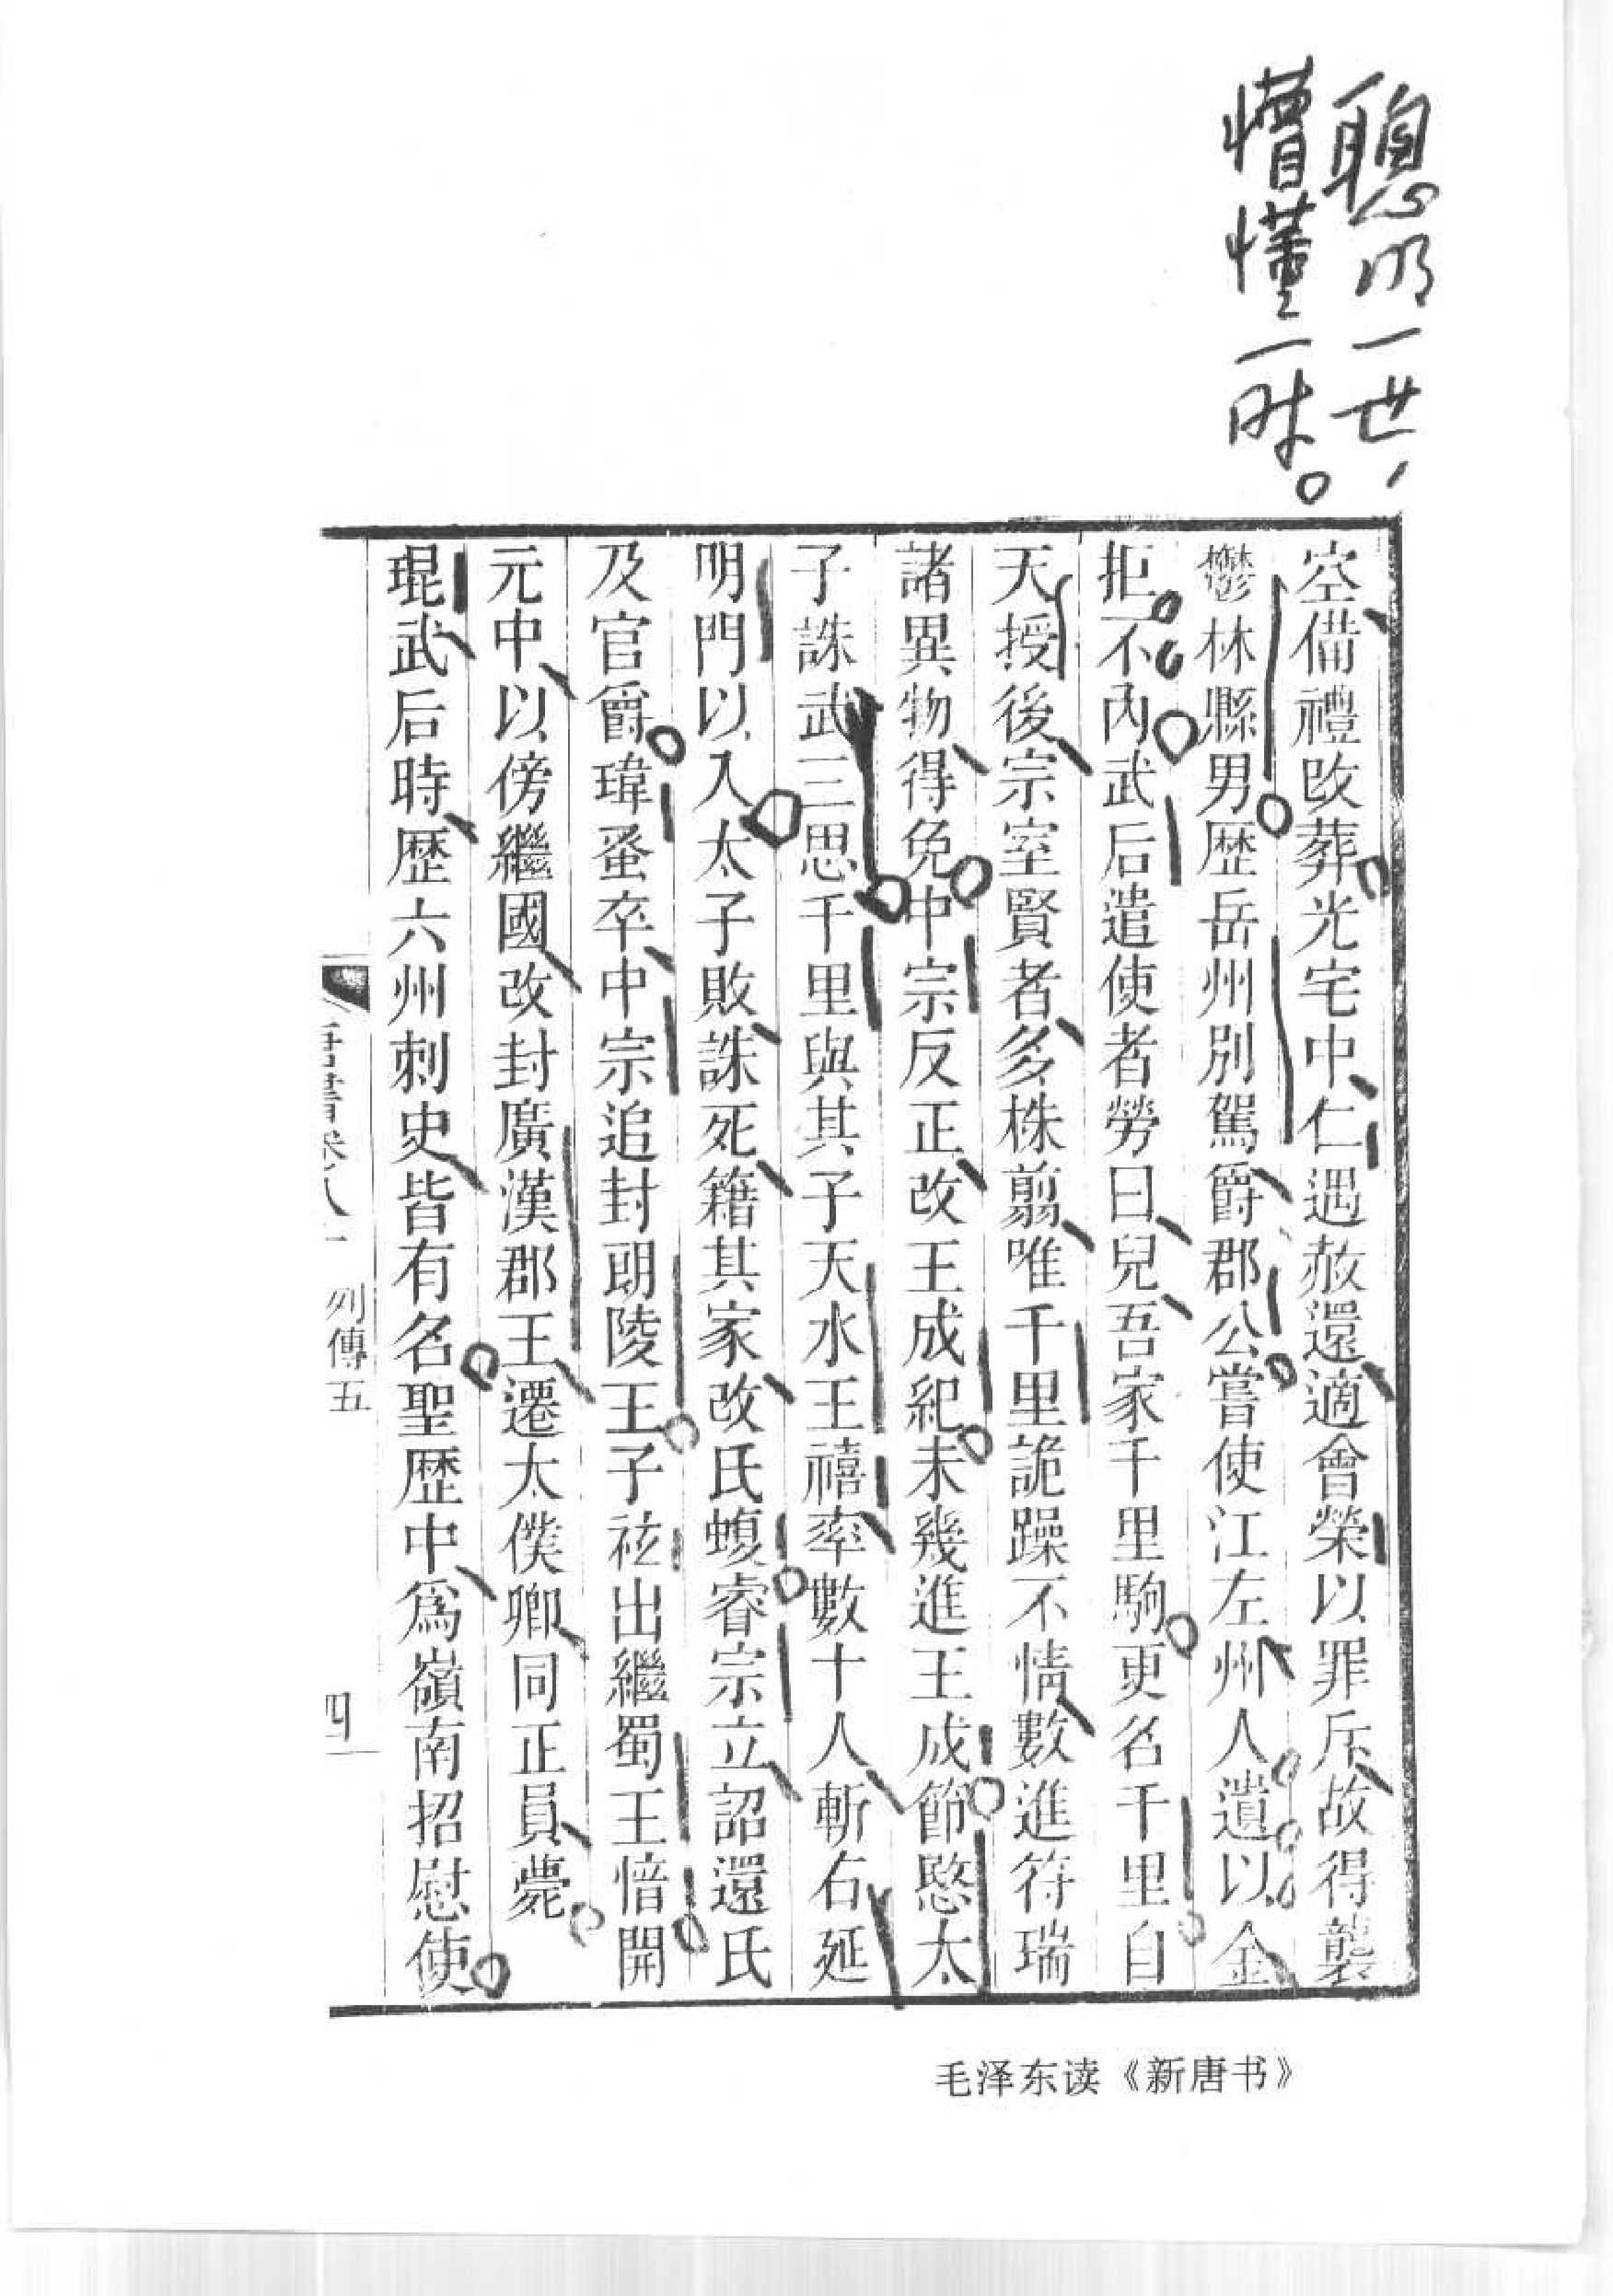 聰明一世、
懵懂一时。
空備禮改葬光宅中仁遇赦還適會榮以罪斥故得襲
鬱林縣男歴岳州別駕爵郡公嘗使江左州人遺以金
拒不內武后遣使者勞曰兒吾家千里駒更名千里自
天授後宗室賢者多株翦唯千里詭躁不情數進符瑞
諸異物得免中宗反正改王成紀未幾進王成節愍太
子誅武三思千里與其子天水王禧率數十人斬右延
明門以入太子敗誅死籍其家改氏蝮睿宗立詔還氏
及官爵瑋蚤卒中宗追封朗陵王子袨出繼蜀王愔開
元中以傍繼國改封廣漢郡王遷太僕卿同正員薨
琨武后時歴六州刺史皆有名聖歴中爲嶺南招慰使
唐書卷八十 列傳五 四
毛泽东读《新唐书》